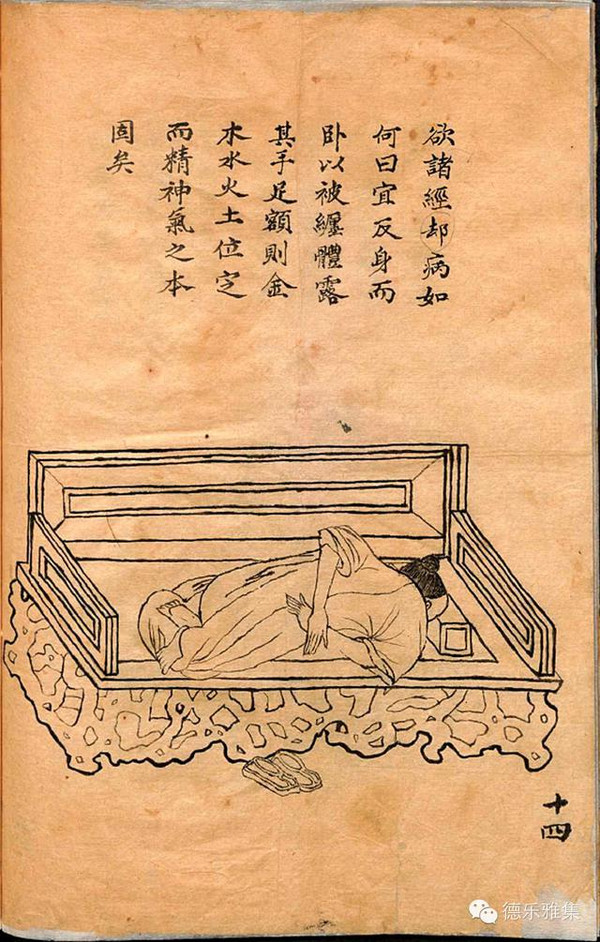 欲諸經却病如
何曰宜反身而
卧以被纏體露
其手足額則金
木水火土位定
而精神氣之本
固矣
十四
德乐雅集